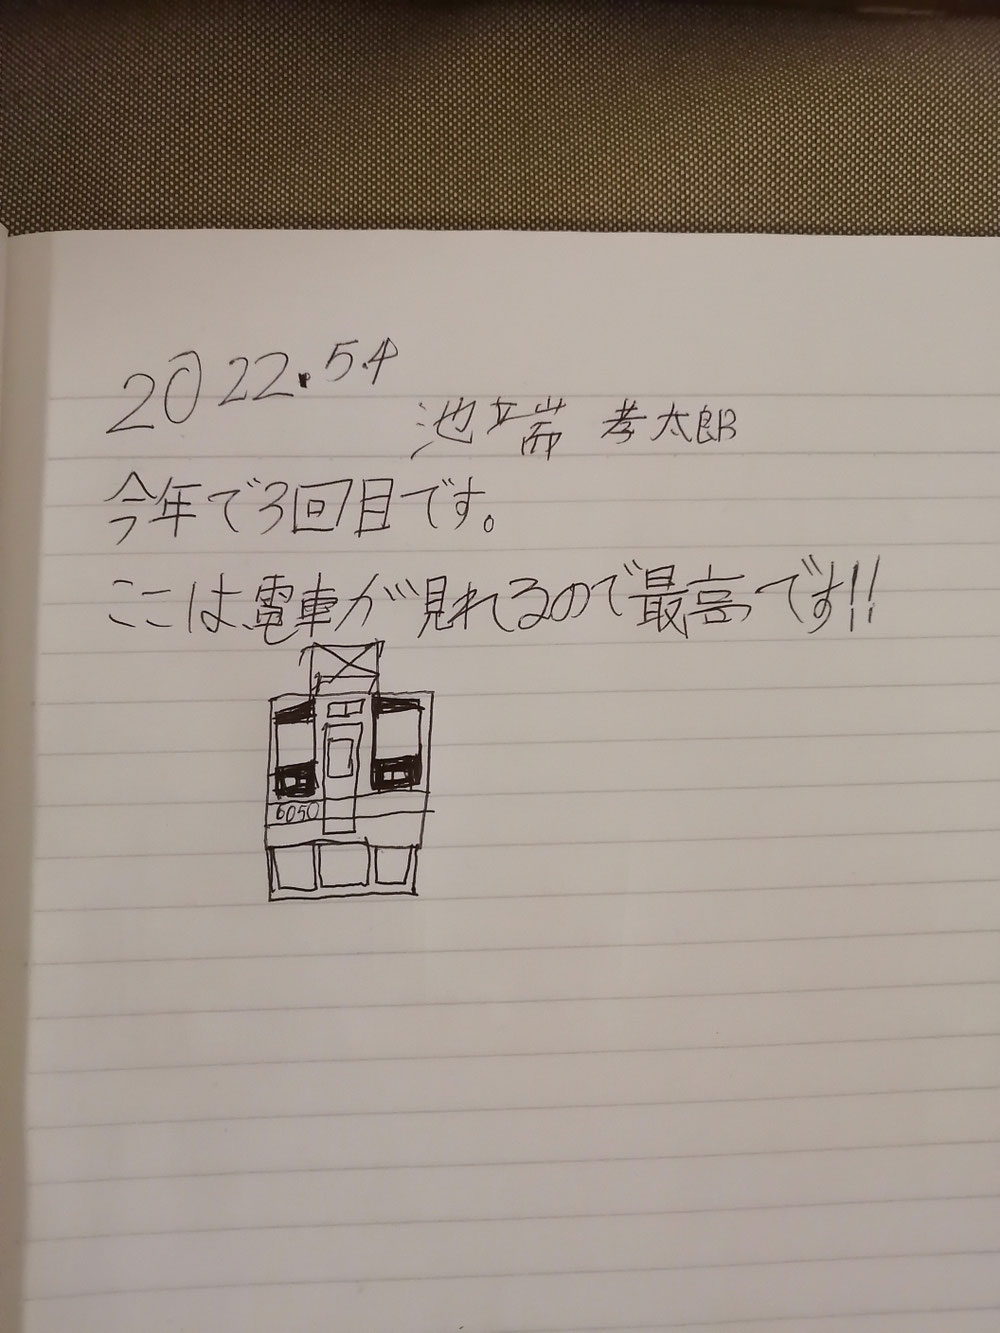 2022.5.4
池端 孝太郎
今年で3回目です。
ここは電車が見れるので最高です!!
6050